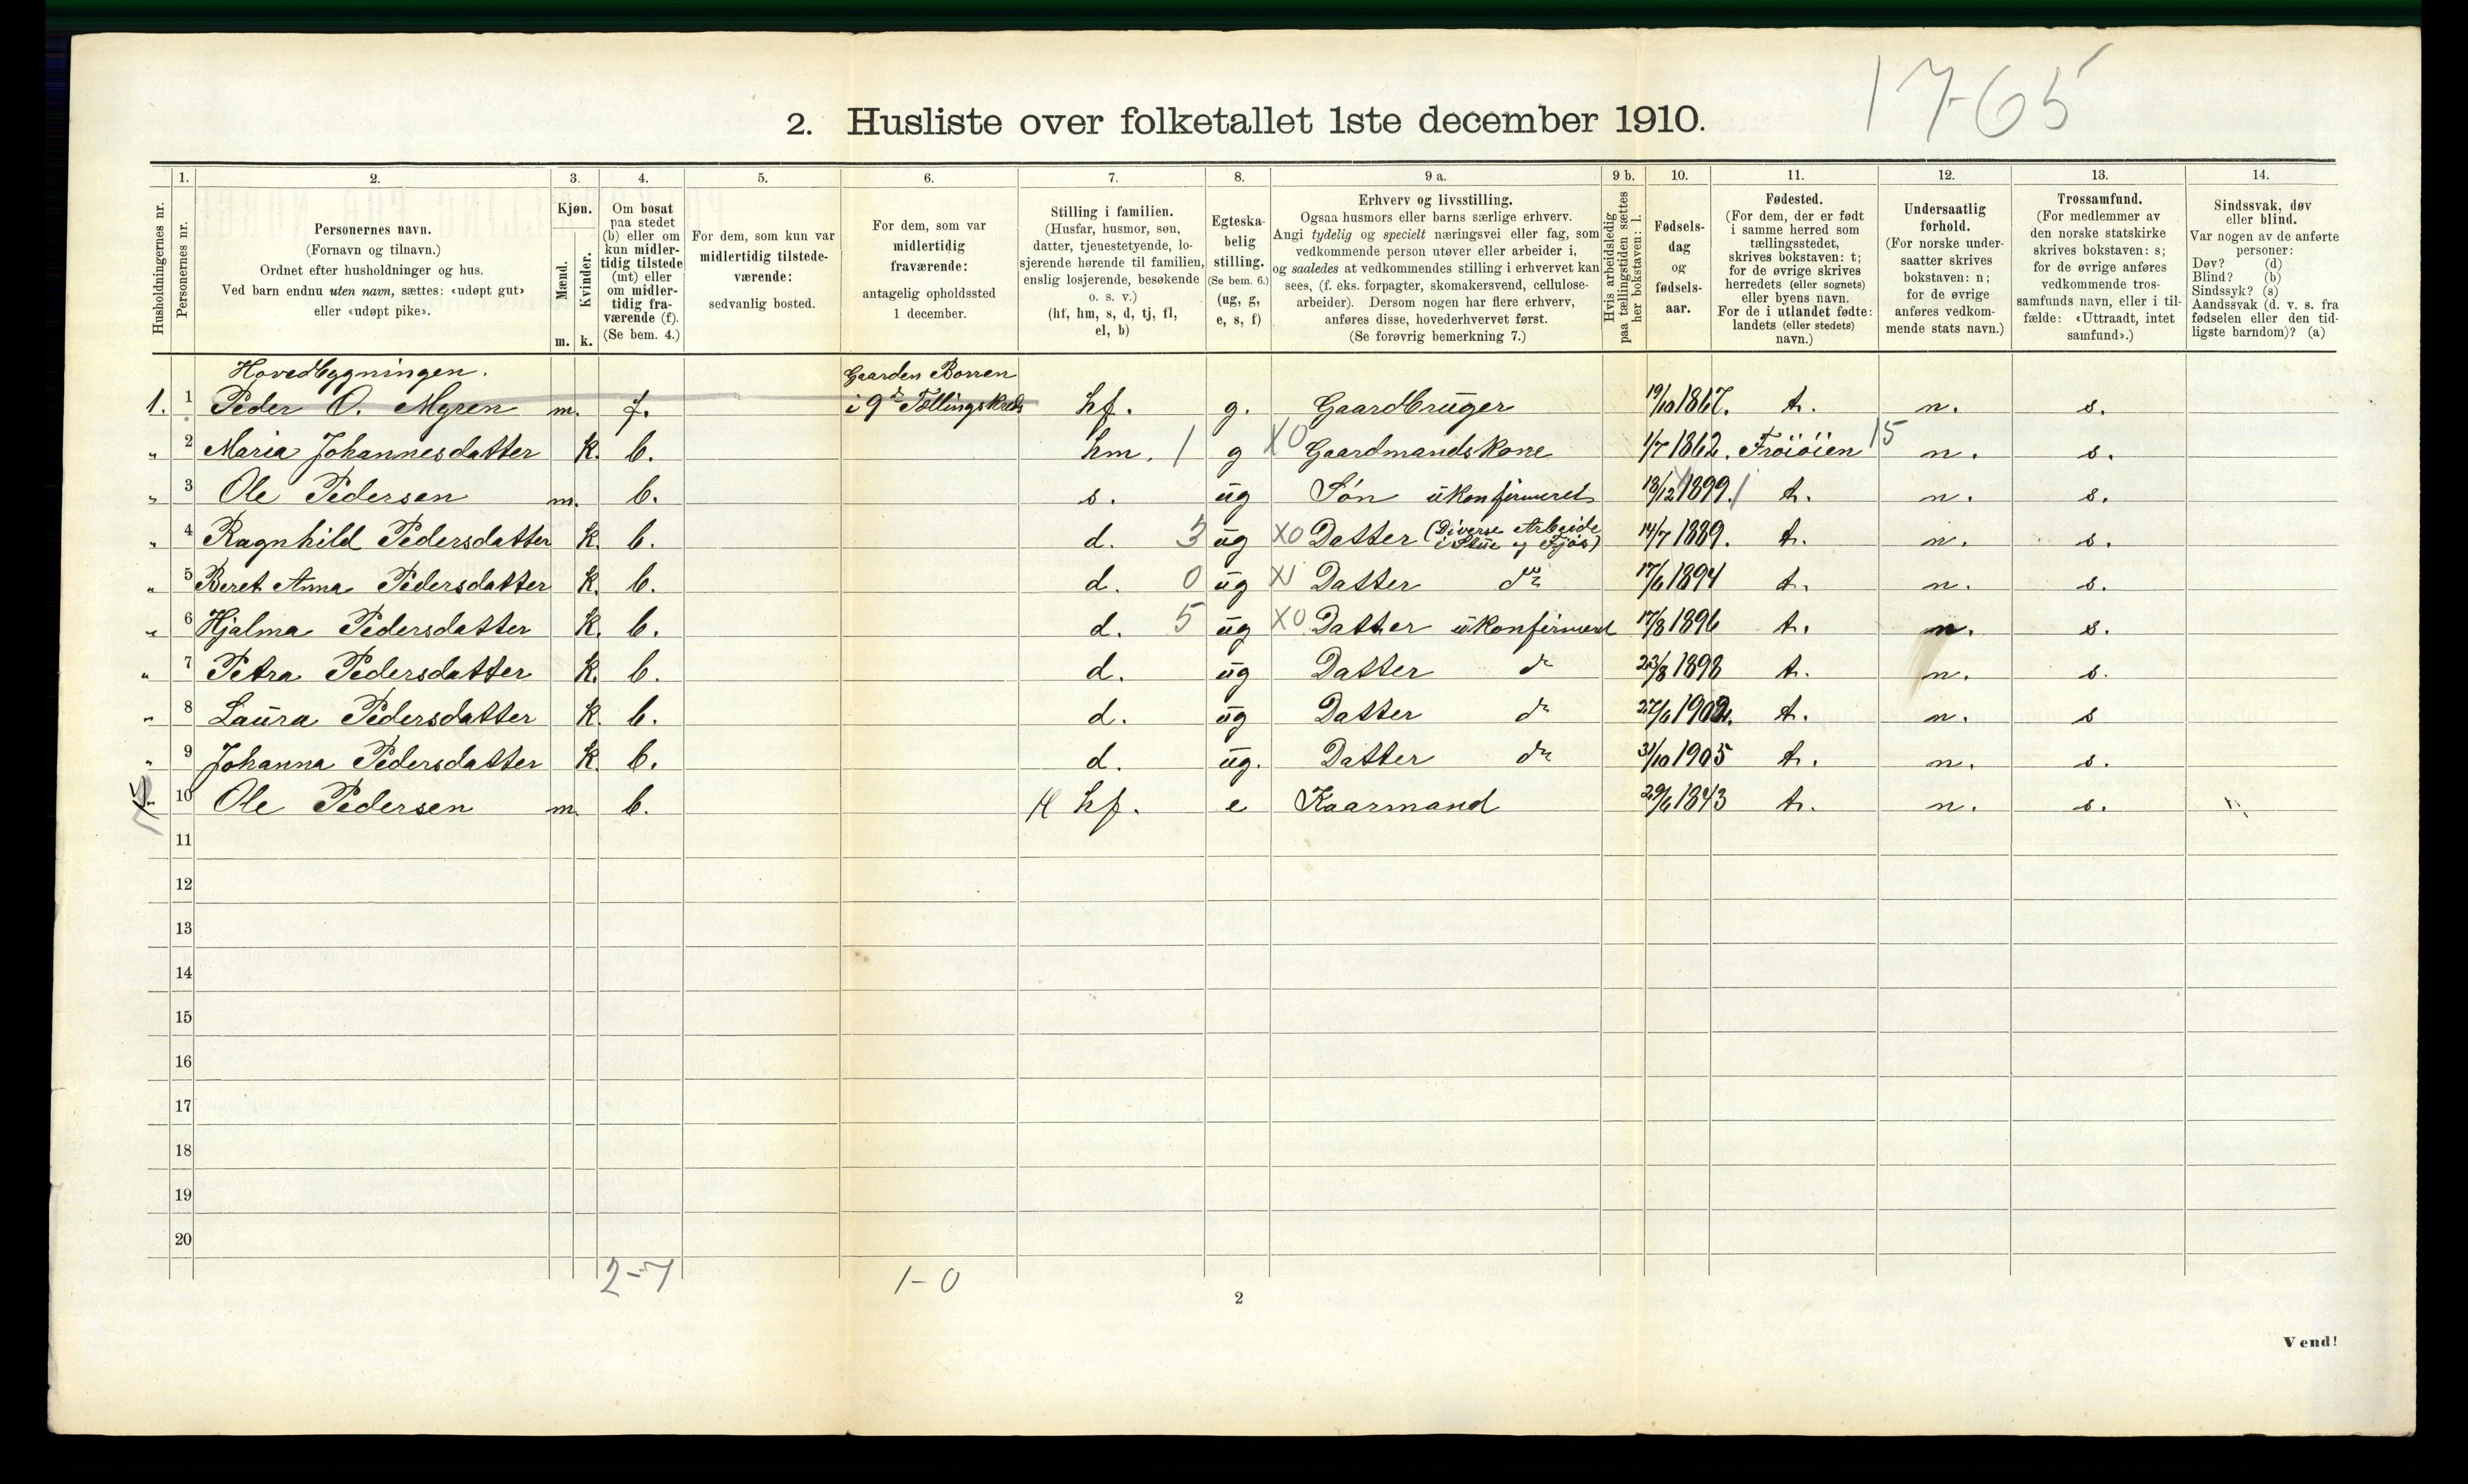 17-65
2. Husliste over folketallet 1ste december 1910.
Husholdningernes nr.
1.
Personernes nr.
2.
Personernes navn.
(Fornavn og tilnavn.)
Ordnet efter husholdninger og hus.
Ved barn endnu uten navn, sættes: «udøpt gut»
eller «udøpt pike».
3.
Kjøn.
Mænd.
Kvinder.
m. k.
4.
Om bosat
paa stedet
(b) eller om
kun midler-
tidig tilstede
(mt) eller
om midler-
tidig fra-
værende (f).
(Se bem. 4.)
5.
For dem, som kun var
midlertidig tilstede-
værende:
sedvanlig bosted.
6.
For dem, som var
midlertidig
fraværende:
antagelig opholdssted
1 december.
7.
Stilling i familien.
(Husfar, husmor, søn,
datter, tjenestetyende, lo-
sjerende hørende til familien,
enslig losjerende, besøkende
o. s. v.)
(hf, hm, s, d, tj, fl,
el, b)
8.
Egteska-
belig
stilling.
(Se bem. 6.)
(ug, g,
e, s, f)
9 a.
Erhverv og livsstilling.
Ogsaa husmors eller barns særlige erhverv.
Angi tydelig og specielt næringsvei eller fag, som
vedkommende person utøver eller arbeider i,
og saaledes at vedkommendes stilling i erhvervet kan
sees, (f. eks. forpagter, skomakersvend, cellulose-
arbeider). Dersom nogen har flere erhverv,
anføres disse, hovederhvervet først.
(Se forøvrig bemerkning 7.)
9 b.
Hvis arbeidsledig
paa tællingstiden sættes
her bokstaven: l.
10.
Fødsels-
dag
og
fødsels-
aar.
11.
Fødested.
(For dem, der er født
i samme herred som
tællingsstedet,
skrives bokstaven: t;
for de øvrige skrives
herredets (eller sognets)
eller byens navn.
For de i utlandet fødte:
landets (eller stedets)
navn.)
12.
Undersaatlig
forhold.
(For norske under-
saatter skrives
bokstaven: n;
for de øvrige
anføres vedkom-
mende stats navn.)
13.
Trossamfund.
(For medlemmer av
den norske statskirke
skrives bokstaven: s;
for de øvrige anføres
vedkommende tros-
samfunds navn, eller i til-
fælde: «Uttraadt, intet
samfund».)
14.
Sindssvak, døv
eller blind.
Var nogen av de anførte
personer:
Døv? (d)
Blind? (b)
Sindssyk? (s)
Aandssvak (d. v. s. fra
fødselen eller den tid-
ligste barndom)? (a)
Hovedbygningen. Gaarden Borren
1. 1 Peder O. Myren m. f. i 9de Tællingskreds hf. g. Gaardbruger 19/10 1867. t. n. s.
" 2 Maria Johannesdatter k. b. hm. 1 g XO Gaardmandskone 1/7 1862. Frøiøien 15 n. s.
" 3 Ole Pedersen m. b. s. ug Søn ukonfirmeret 18/12 1899. t. n. s.
" 4 Ragnhild Pedersdatter k. b. d. 3 ug XO Datter (Diverse Arbeide i Stue og Fjøs) 14/7 1889. t. n. s.
" 5 Beret Anna Pedersdatter k. b. d. 0 ug X Datter do 17/6 1894 t. n. s.
" 6 Hjalma Pedersdatter k. b. d. 5 ug XO Datter ukonfirmeret 17/8 1896 t. n. s.
" 7 Petra Pedersdatter k. b. d. ug Datter do 23/8 1898 t. n. s.
" 8 Laura Pedersdatter k. b. d. ug Datter do 27/6 1902. t. n. s
" 9 Johanna Pedersdatter k. b. d. ug. Datter do 31/10 1905 t. n. s.
" 10 Ole Pedersen m. b. hf. e Kaarmand 29/6 1843 t. n. s.
11
12
13
14
15
16
17
18
19
20
2-7 1-0
2
Vend!